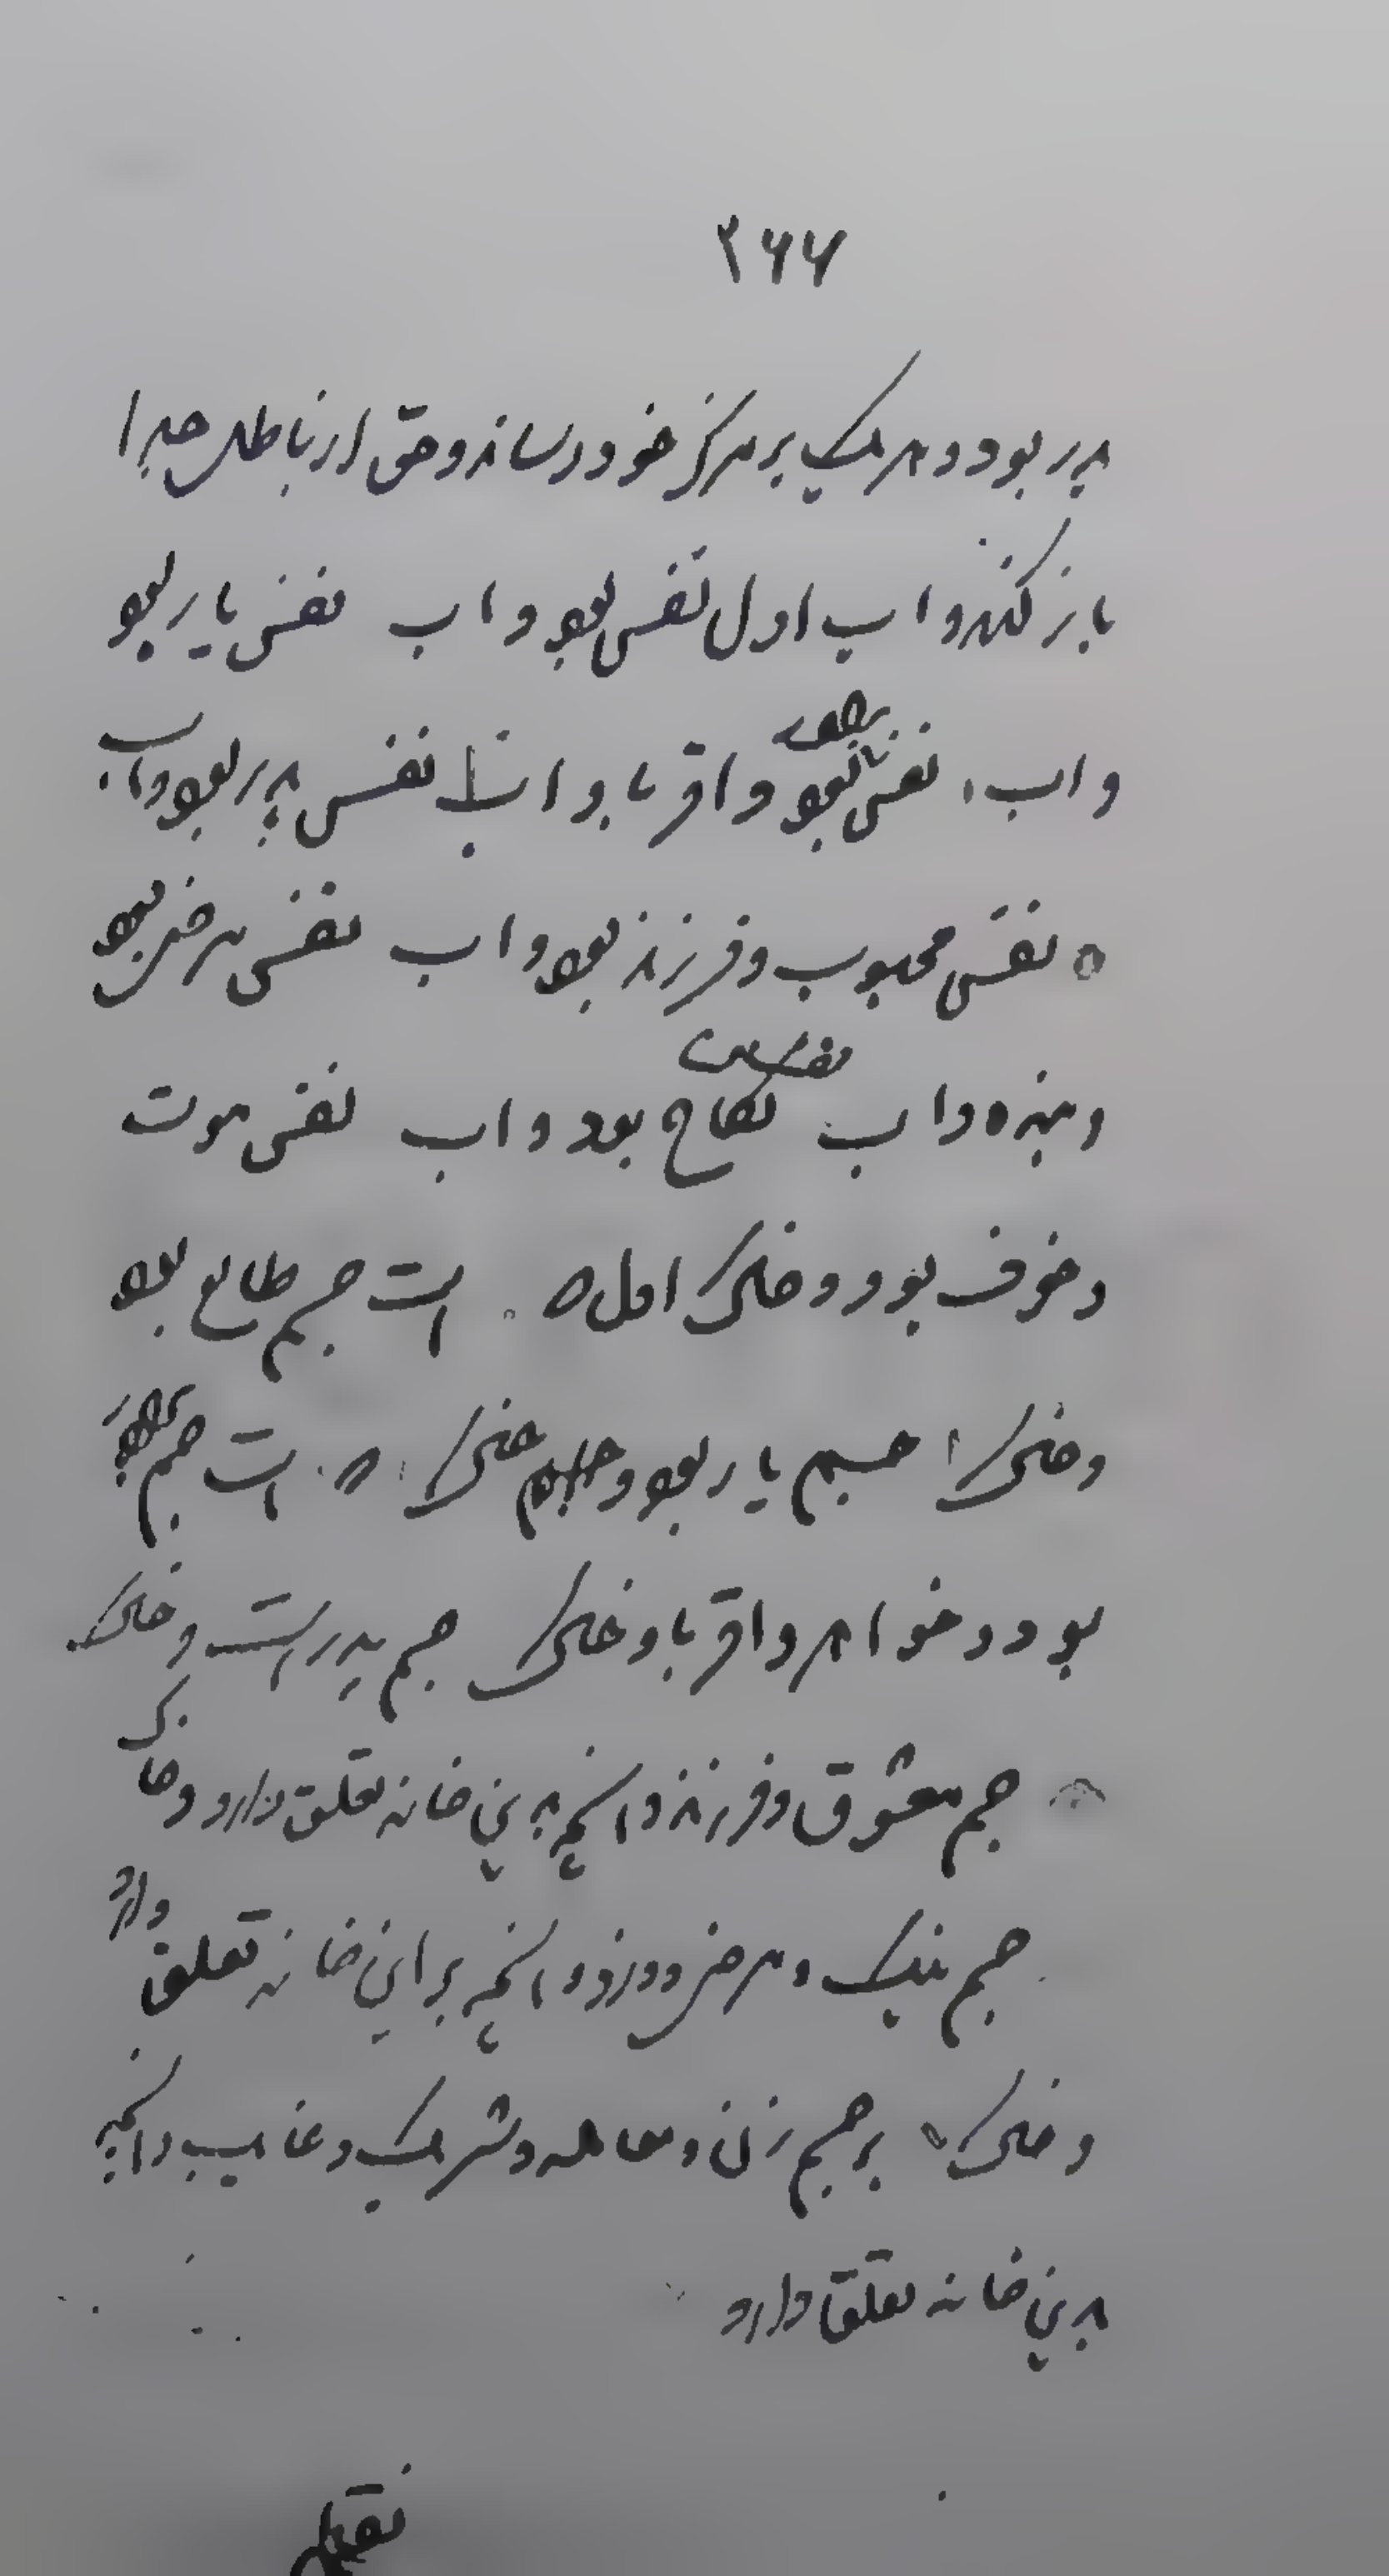 ۲۶۶
پدر بود و هر یک بر مرکز خود رساند و حق از باطل جدا
باز کند و اب اول نفس بود و اب نفس یار بود
و اب نفس بود و اقربا و اب نفس پدر بود و اب
نفس محبوب و فرزند بود و اب نفس مرض بود
و بنده و اب نکاح بود و اب نفس موت
و خوف بود و خاک اول جسم طالع بود
و خاک جسم یار بود و خاک جسم
بود و خواهر و اقربا و خاک جسم پدر است و خاک
جسم معشوق و فرزند و انچه بدین خانه تعلق دارد و خاک
جسم و مرض و دزد و انچه بر این خانه تعلق دارد
و خاک بر جسم زن و معامله و شریک و غایب و انچه
بدین خانه تعلق دارد